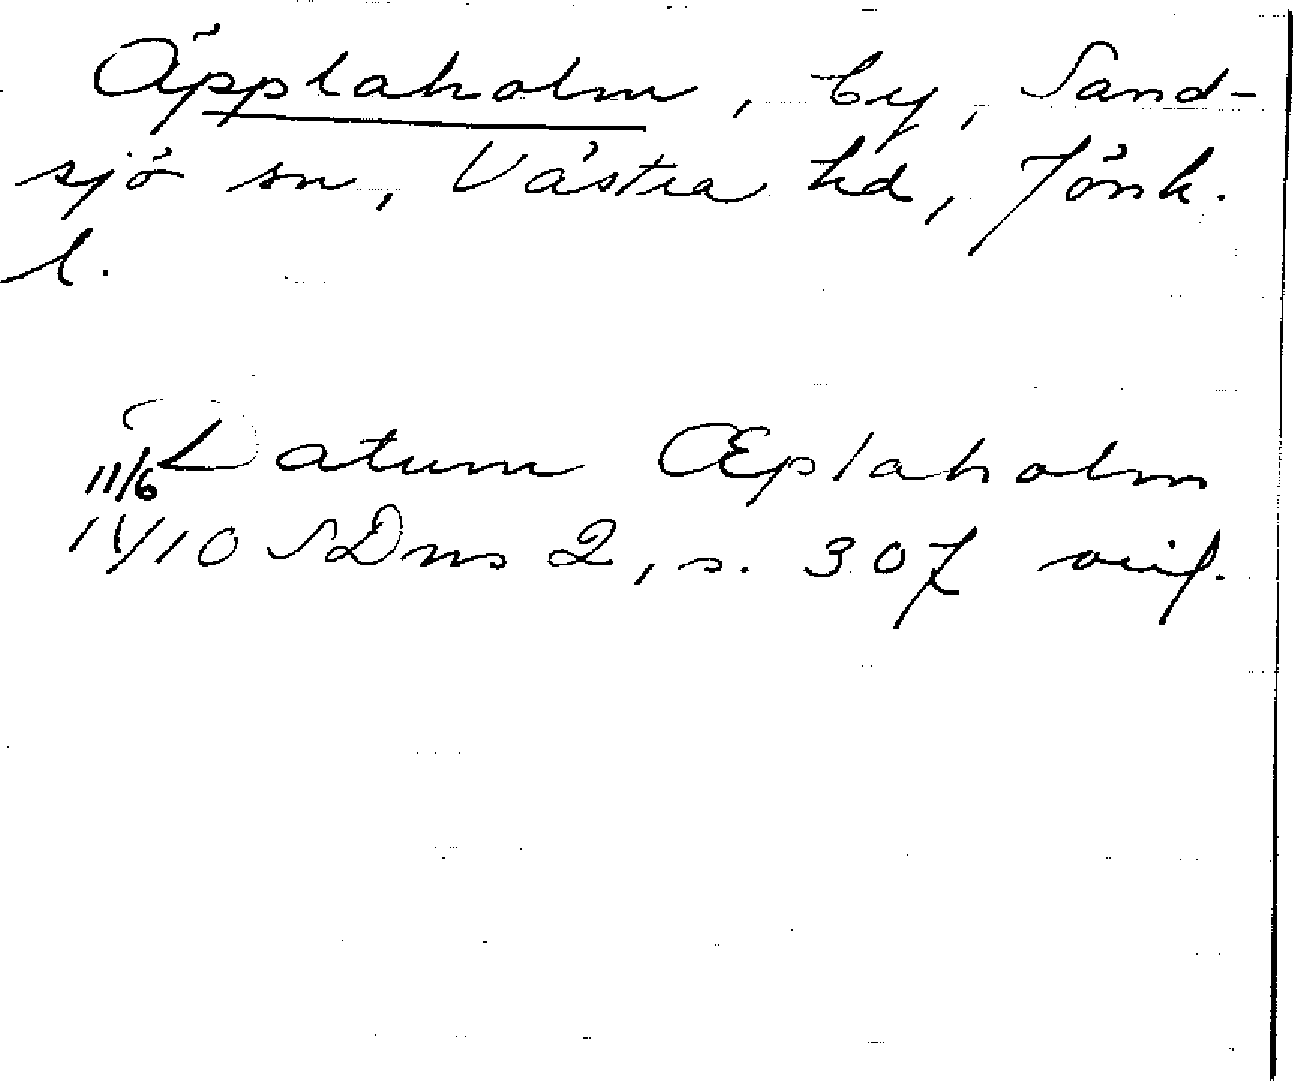 Äpplaholm, by, Sand-
sjö sn, Västra hd, Jönk.
l.
(Datum Æplaholm
11/6
14/10 SDns 2, s. 307 orig.